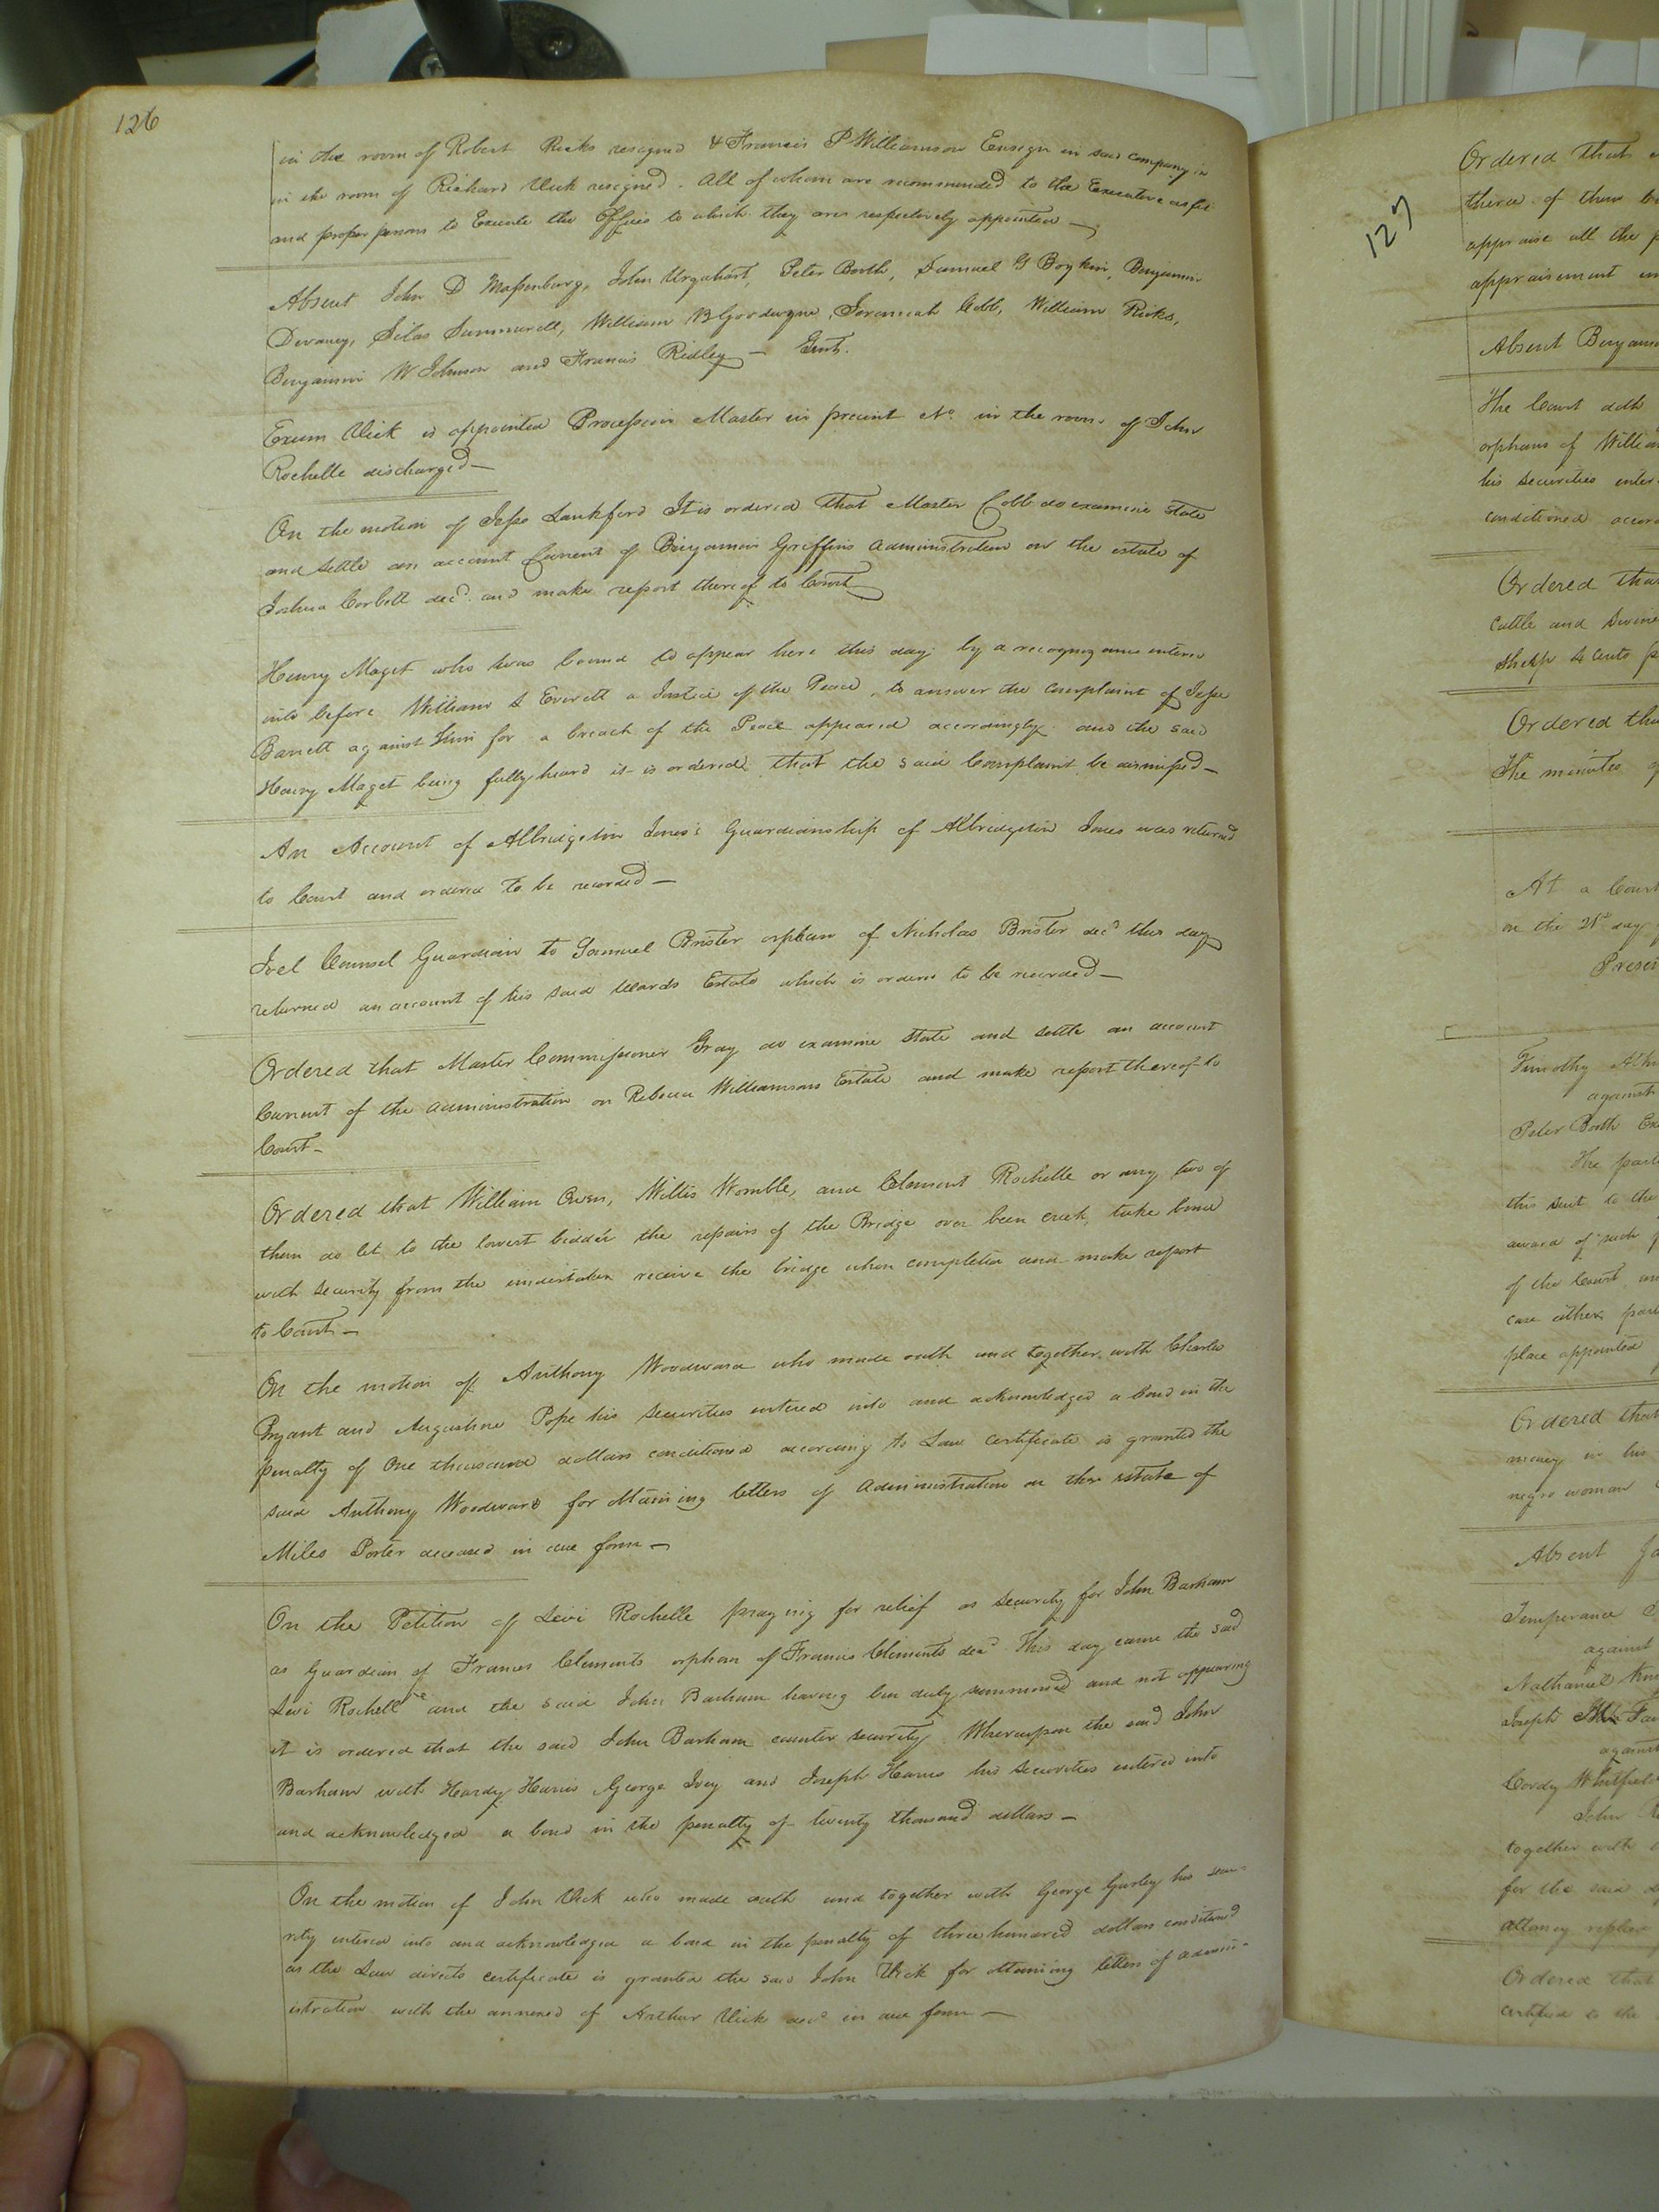 126
in the room of Robert Ricks resigned & Francis P Williamson Ensign in said company in
in the room of Richard Vick resigned. All of whom are recommended to the Executive as fit
and proper persons to Execute the Offices to which they are respectively appointed —
Absent John D Massenburg, John Urquhart, Peter Booth, Samuel G Boykin, Benjamin
Devany, Silas Summerell, William B Goodwyn, Jeremiah Cobb, William Ricks,
Benjamin W Johnson and Francis Ridley — Gent.
Exum Vick is appointed Procession Master in precinct No in the room of John
Rochelle discharged —
On the motion of Jesse Lankford It is ordered that Master Cobb do examine state
and settle an account Current of Benjamin Griffins administration on the estate of
Joshua Corbett decd. and make report thereof to Court
Henry Maget who was bound to appear here this day by a recognizance entered
into before William S Everett a Justice of the Peace, to answer the complaint of Jesse
Barrett against him for a breach of the Peace appeared accordingly and the said
Henry Maget being fully heard it is ordered that the said Complaint be dismissed —
An Account of Albridgeton Jones's Guardianship of Albridgeton Jones was returned
to Court and ordered to be recorded —
Joel Counsel Guardian to Samuel Brister orphan of Nicholas Brister decd this day
returned an account of his said Wards Estate which is ordered to be recorded —
Ordered that Master Commissioner Gray do examine state and settle an account
Current of the administration on Rebecca Williamsons Estate and make report thereof to
Court —
Ordered that William Owen, Willis Womble, and Clement Rochelle or any two of
them do let to the lowest bidder the repairs of the Bridge over creek, take bond
with security from the undertaker receive the bridge when completed and make report
to Court —
On the motion of Anthony Woodward who made oath and together with Charles
Bryant and Augustine Pope his securities entered into and acknowledged a bond in the
penalty of One thousand dollars conditioned according to Law certificate is granted the
said Anthony Woodward for obtaining letters of administration on the estate of
Miles Porter deceased in due form —
On the Petition of Levi Rochelle praying for relief as security for John Barham
as Guardian of Frances Clements orphan of Francis Clements decd This day came the said
Levi Rochelle and the said John Barham having been duly summoned and not appearing
it is ordered that the said John Barham counter security Whereupon the said John
Barham with Hardy Harris George Ivey and Joseph Harris his securities entered into
and acknowledged a bond in the penalty of twenty thousand dollars —
On the motion of John Vick who made oath and together with George Gurley his secu-
rity entered into and acknowledged a bond in the penalty of three hundred dollars conditioned
as the Law directs certificate is granted the said John Vick for obtaining letters of admin-
istration with the annexed of Arthur Vick decd in due form —
127
Ordered that
three of them
appraise all the
appraisement
Absent Benjamin
The Court doth
orphans of William
his securities enter
conditioned accord
Ordered that
cattle and swine
sheep 4 cents
Ordered tha
The minutes
At a Court
on the 21st day
Presen
Timothy
against
Peter Booth Ex
The part
this suit to the
award of such
of the Court
case either par
place appointed
Ordered that
money in his
negro woman
Absent
Temperance
against
Nathaniel
Joseph
against
Cordy Whitfield
John
together with
for the said
attorney
Ordered that
certified to the